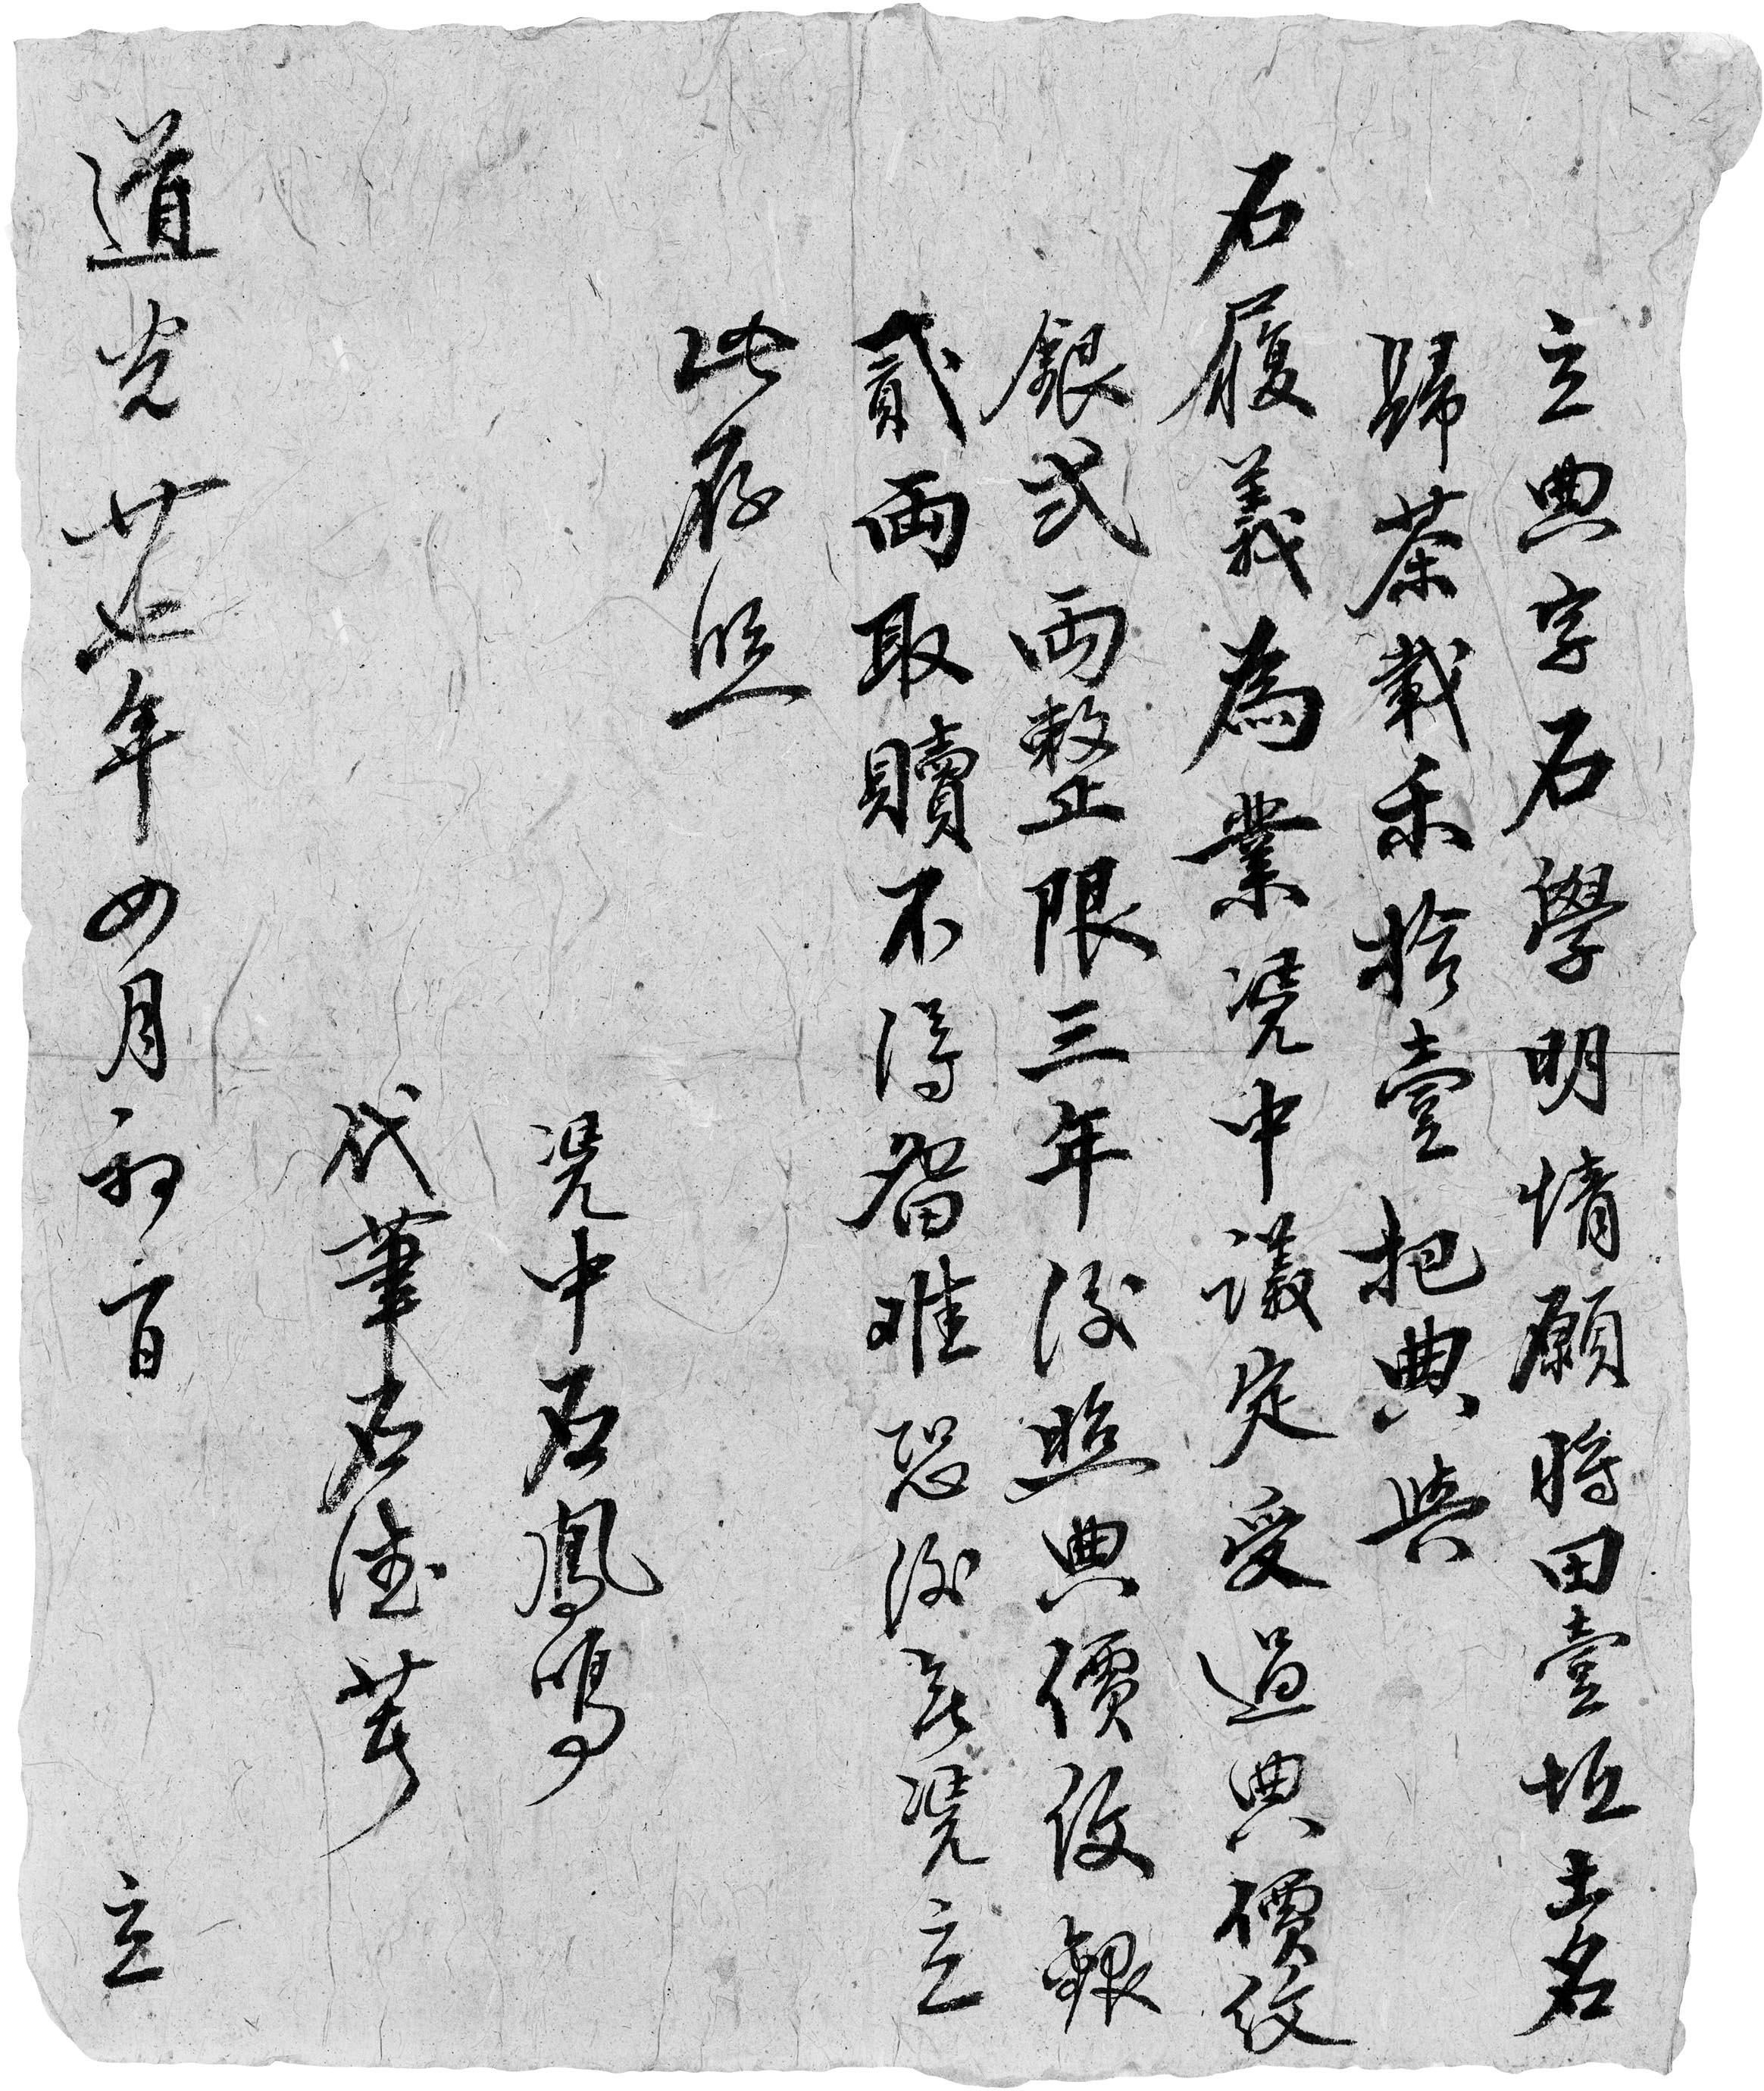 立典字石學明情願將田壹坵土名
歸茶載禾拾壹把典與
石履義為業凴中議定受過典價紋
銀弍両整限三年後照典價紋銀
貳両取贖不淂留难恐後無凴立
此存照
凴中石鳳鳴
代筆石德
道光廿七年四月初一日立